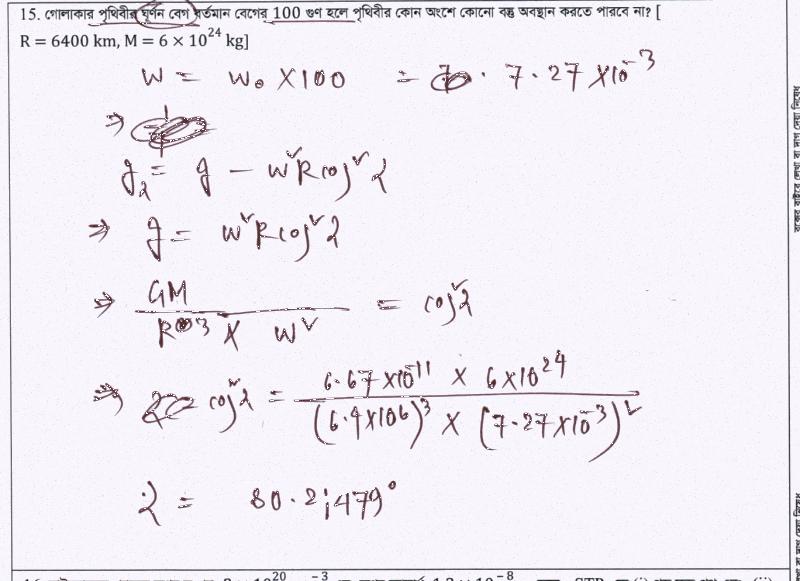 15. গোলাকার পৃথিবীর ঘূর্ণন বেগ বর্তমান বেগের 100 গুণ হলে পৃথিবীর কোন অংশে কোনো বস্তু অবস্থান করতে পারবে না? [
R = 6400 km, M = 6 × 10²⁴ kg]
W = W₀ × 100 = 7.27 × 10⁻³
⇒
g_λ = g − W²R cos²λ
⇒ g = W²R cos²λ
⇒ GM / R³ × W² = cos²λ
⇒ cos²λ = 6.67 × 10⁻¹¹ × 6 × 10²⁴ / (6.4 × 10⁶)³ × (7.27 × 10⁻³)²
λ = 80.21479°